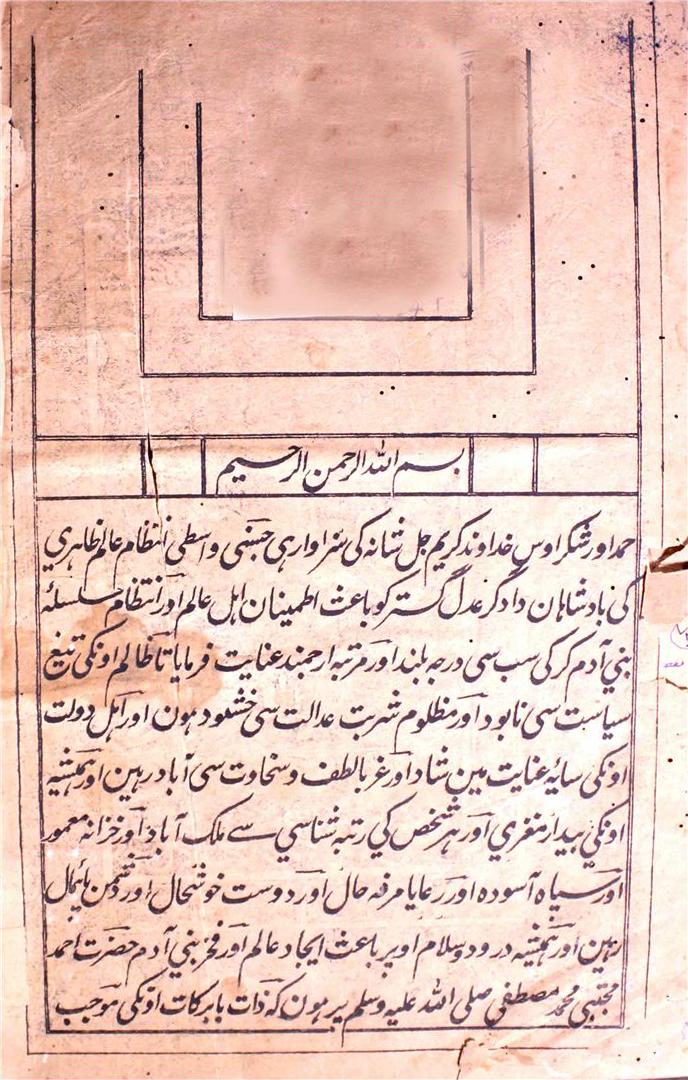 بسم الله الرحمن الرحيم
حمد اور شکر اوس خداوند کریم جل شانہ کی سزاوار ہی جسنی واسطی انتظام عالم ظاہري
کی بادشاہان دادگر عدل گستر کو باعث اطمینان اہل عالم اور انتظام سلسلۂ
بني آدم کر کی سب سی درجہ بلند اور مرتبہ ارجمند عنایت فرمایا تا ظالم اونکی تیغ
سیاست سی نابود اور مظلوم شربت عدالت سی خشنود ہون اور اہل دولت
اونکی سایۂ عنایت مین شاد اور غربا لطف و سخاوت سی آباد رہین اور ہمیشہ
اونکي بیدار مغزي اور ہر شخص کي رتبہ شناسي سے ملک آباد اور خزانہ معمور
اور سپاہ آسودہ اور رعایا مرفہ حال اور دوست خوشحال اور دشمن پائمال
رہین اور ہمیشہ درود و سلام اوپر باعث ایجاد عالم اور فخر بني آدم حضرت احمد
مجتبی محمد مصطفی صلی اللہ علیہ وسلم پر ہون کہ ذات بابرکات اونکی موجب